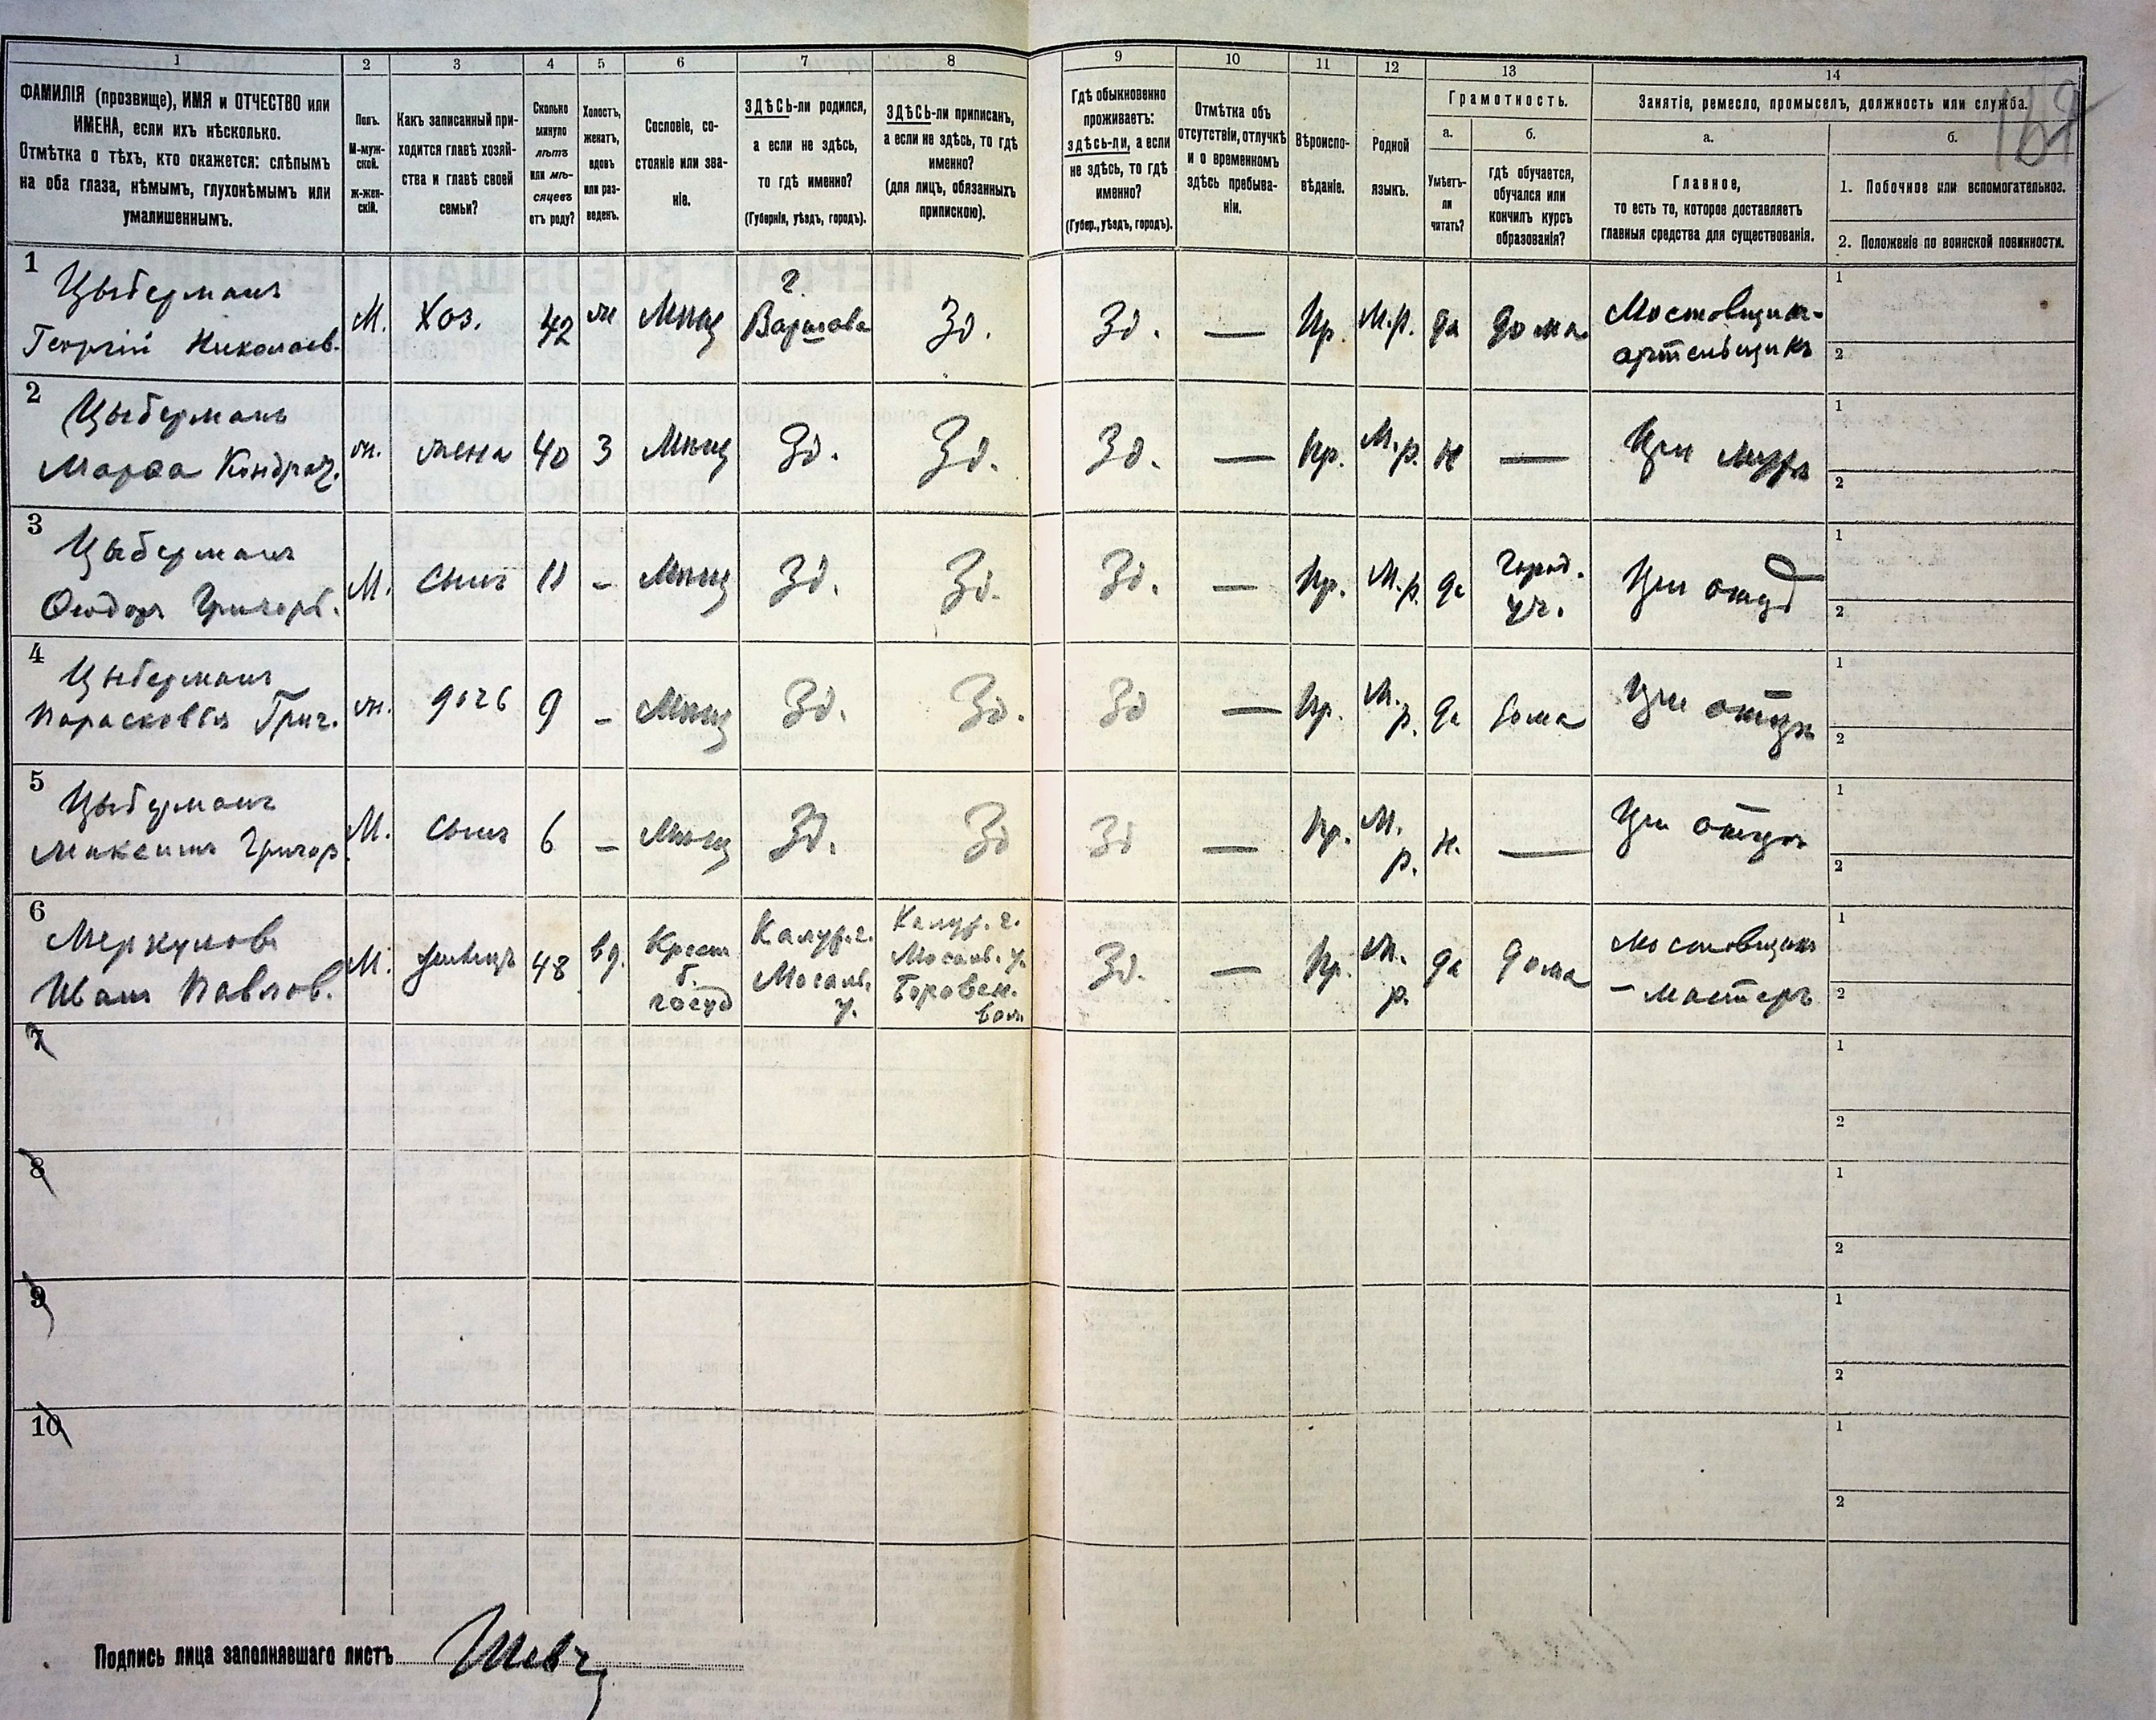 1 2 3 4 5 6 7 8 9 10 11 12 13 14
ФАМИЛІЯ (прозвище), ИМЯ и ОТЧЕСТВО или
ИМЕНА, если ихъ нѣсколько.
Отмѣтка о тѣхъ, кто окажется: слѣпымъ
на оба глаза, нѣмымъ, глухонѣмымъ или
умалишеннымъ.
Полъ.
М-муж-
ской.
Ж-жен-
скій.
Какъ записанный при-
ходится главѣ хозяй-
ства и главѣ своей
семьи?
Сколько
минуло
лѣтъ
или мѣ-
сяцевъ
отъ роду?
Холостъ,
женатъ,
вдовъ
или раз-
веденъ.
Сословіе, со-
стояніе или зва-
ніе.
ЗДѢСЬ-ли родился,
а если не здѣсь,
то гдѣ именно?
(Губернія, уѣздъ, городъ).
ЗДѢСЬ-ли приписанъ,
а если не здѣсь, то гдѣ
именно?
(для лицъ, обязанныхъ
припискою).
Гдѣ обыкновенно
проживаетъ:
здѣсь-ли, а если
не здѣсь, то гдѣ
именно?
(Губер., уѣздъ, городъ).
Отмѣтка объ
отсутствіи, отлучкѣ
и о временномъ
здѣсь пребыва-
ніи.
Вѣроиспо-
вѣданіе.
Родной
языкъ.
Грамотность.
а.
Умѣетъ-
ли
читать?
б.
гдѣ обучается,
обучался или
кончилъ курсъ
образованія?
Занятіе, ремесло, промыселъ, должность или служба.
а.
Главное,
то есть то, которое доставляетъ
главныя средства для существованія.
б.
1. Побочное или вспомогательное.
2. Положеніе по воинской повинности.
1
Цыберманъ
Георгій Николаев.
М.
Хоз.
42
ж
Мѣщ
г.
Варшава
Зд.
Зд.
—
Пр.
М.р.
да
дома
Мостовщик-
артельщикъ
1
2
2
Цыберманъ
Марѳа Кондрат.
ж.
жена
40
З
Мѣщ
Зд.
Зд.
Зд.
—
Пр.
М.р.
н
—
При мужѣ
1
2
3
Цыберманъ
Ѳеодоръ Григорь.
М.
сынъ
11
-
Мѣщ
Зд.
Зд.
Зд.
—
Пр.
М.р.
да
Город.
уч.
При отцѣ
1
2
4
Цыберманъ
Парасковья Григ.
ж.
дочь
9
-
Мѣщ
Зд.
Зд.
Зд
—
Пр.
М.
р.
да
дома
При отцѣ
1
2
5
Цыберманъ
Максимъ Григор.
М.
сынъ
6
-
Мѣщ
Зд.
Зд
Зд
—
Пр.
М.
р.
н.
—
При отцѣ
1
2
6
Меркуловъ
Иванъ Павлов.
М.
жилецъ
48
вд.
Крест
б.
госуд
Калуж. г.
Мосаль.
у.
Калуж. г.
Мосаль. у.
Боровен.
вол.
Зд.
—
Пр.
М.
р.
да
дома
Мостовщикъ
- мастеръ
1
2
7
1
2
8
1
2
9
1
2
10
1
2
Подпись лица заполнявшаго листъ